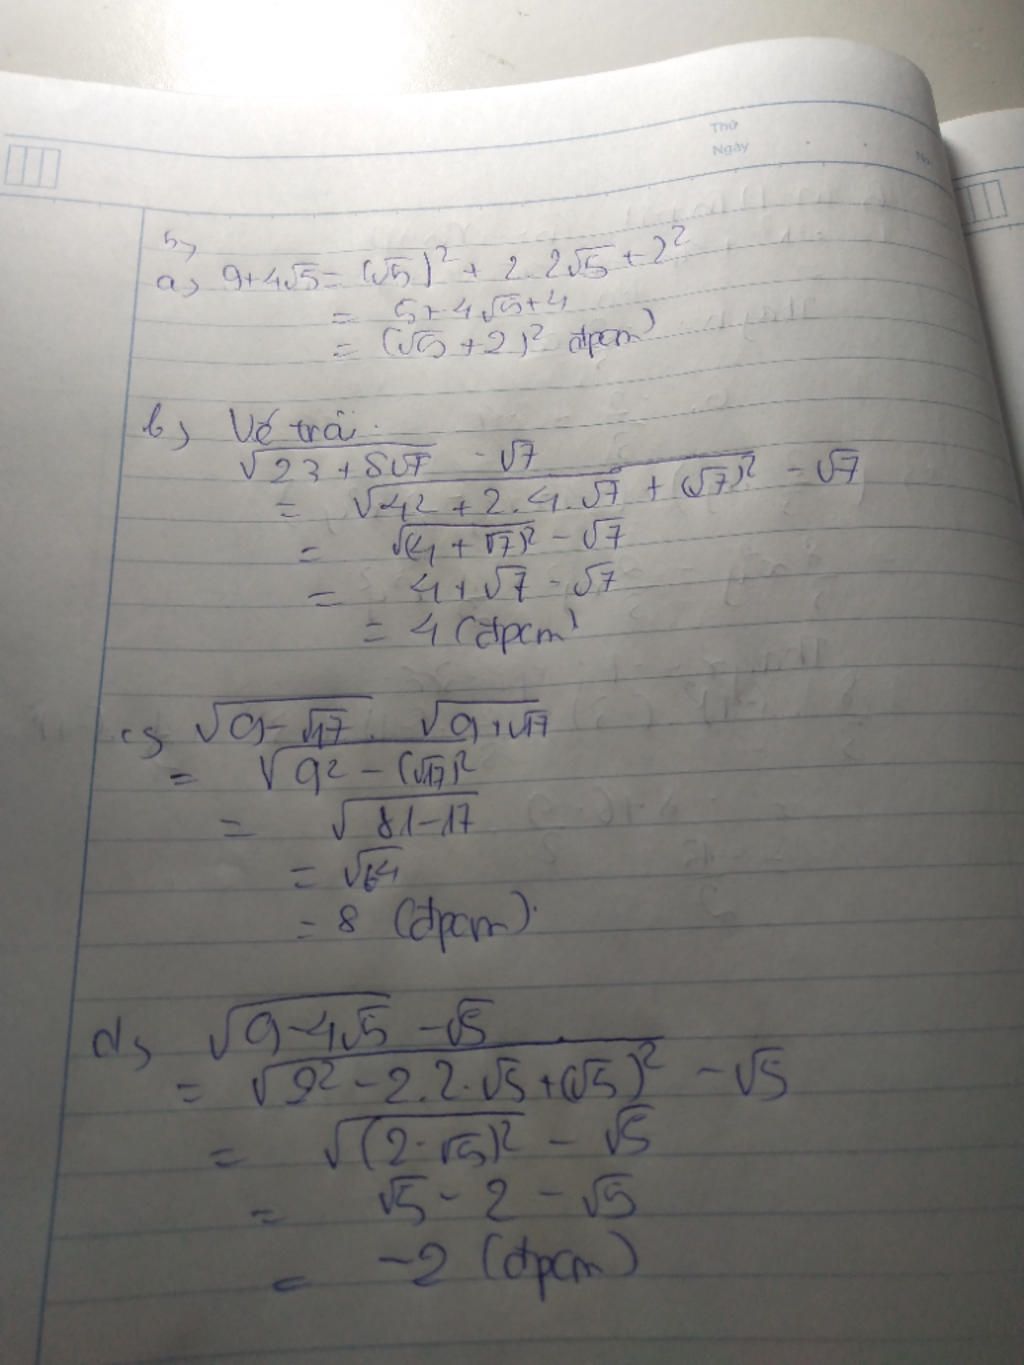 Thứ
Ngày
No.
5,
a, 9+4√5 = (√5)² + 2.2√5 + 2²
= 5+4√5+4
= (√5+2)² đpcm)
b, Vế trái
√23+8√7 - √7
= √4² + 2.4.√7 + (√7)² - √7
= √(4+√7)² - √7
= 4+√7 - √7
= 4 (đpcm)
c, √9-√17 . √9+√17
= √9² - (√17)²
= √81-17
= √64
= 8 (đpcm).
d, √9-4√5 - √5
= √2² - 2.2.√5 + (√5)² - √5
= √(2-√5)² - √5
= √5 - 2 - √5
= -2 (đpcm)